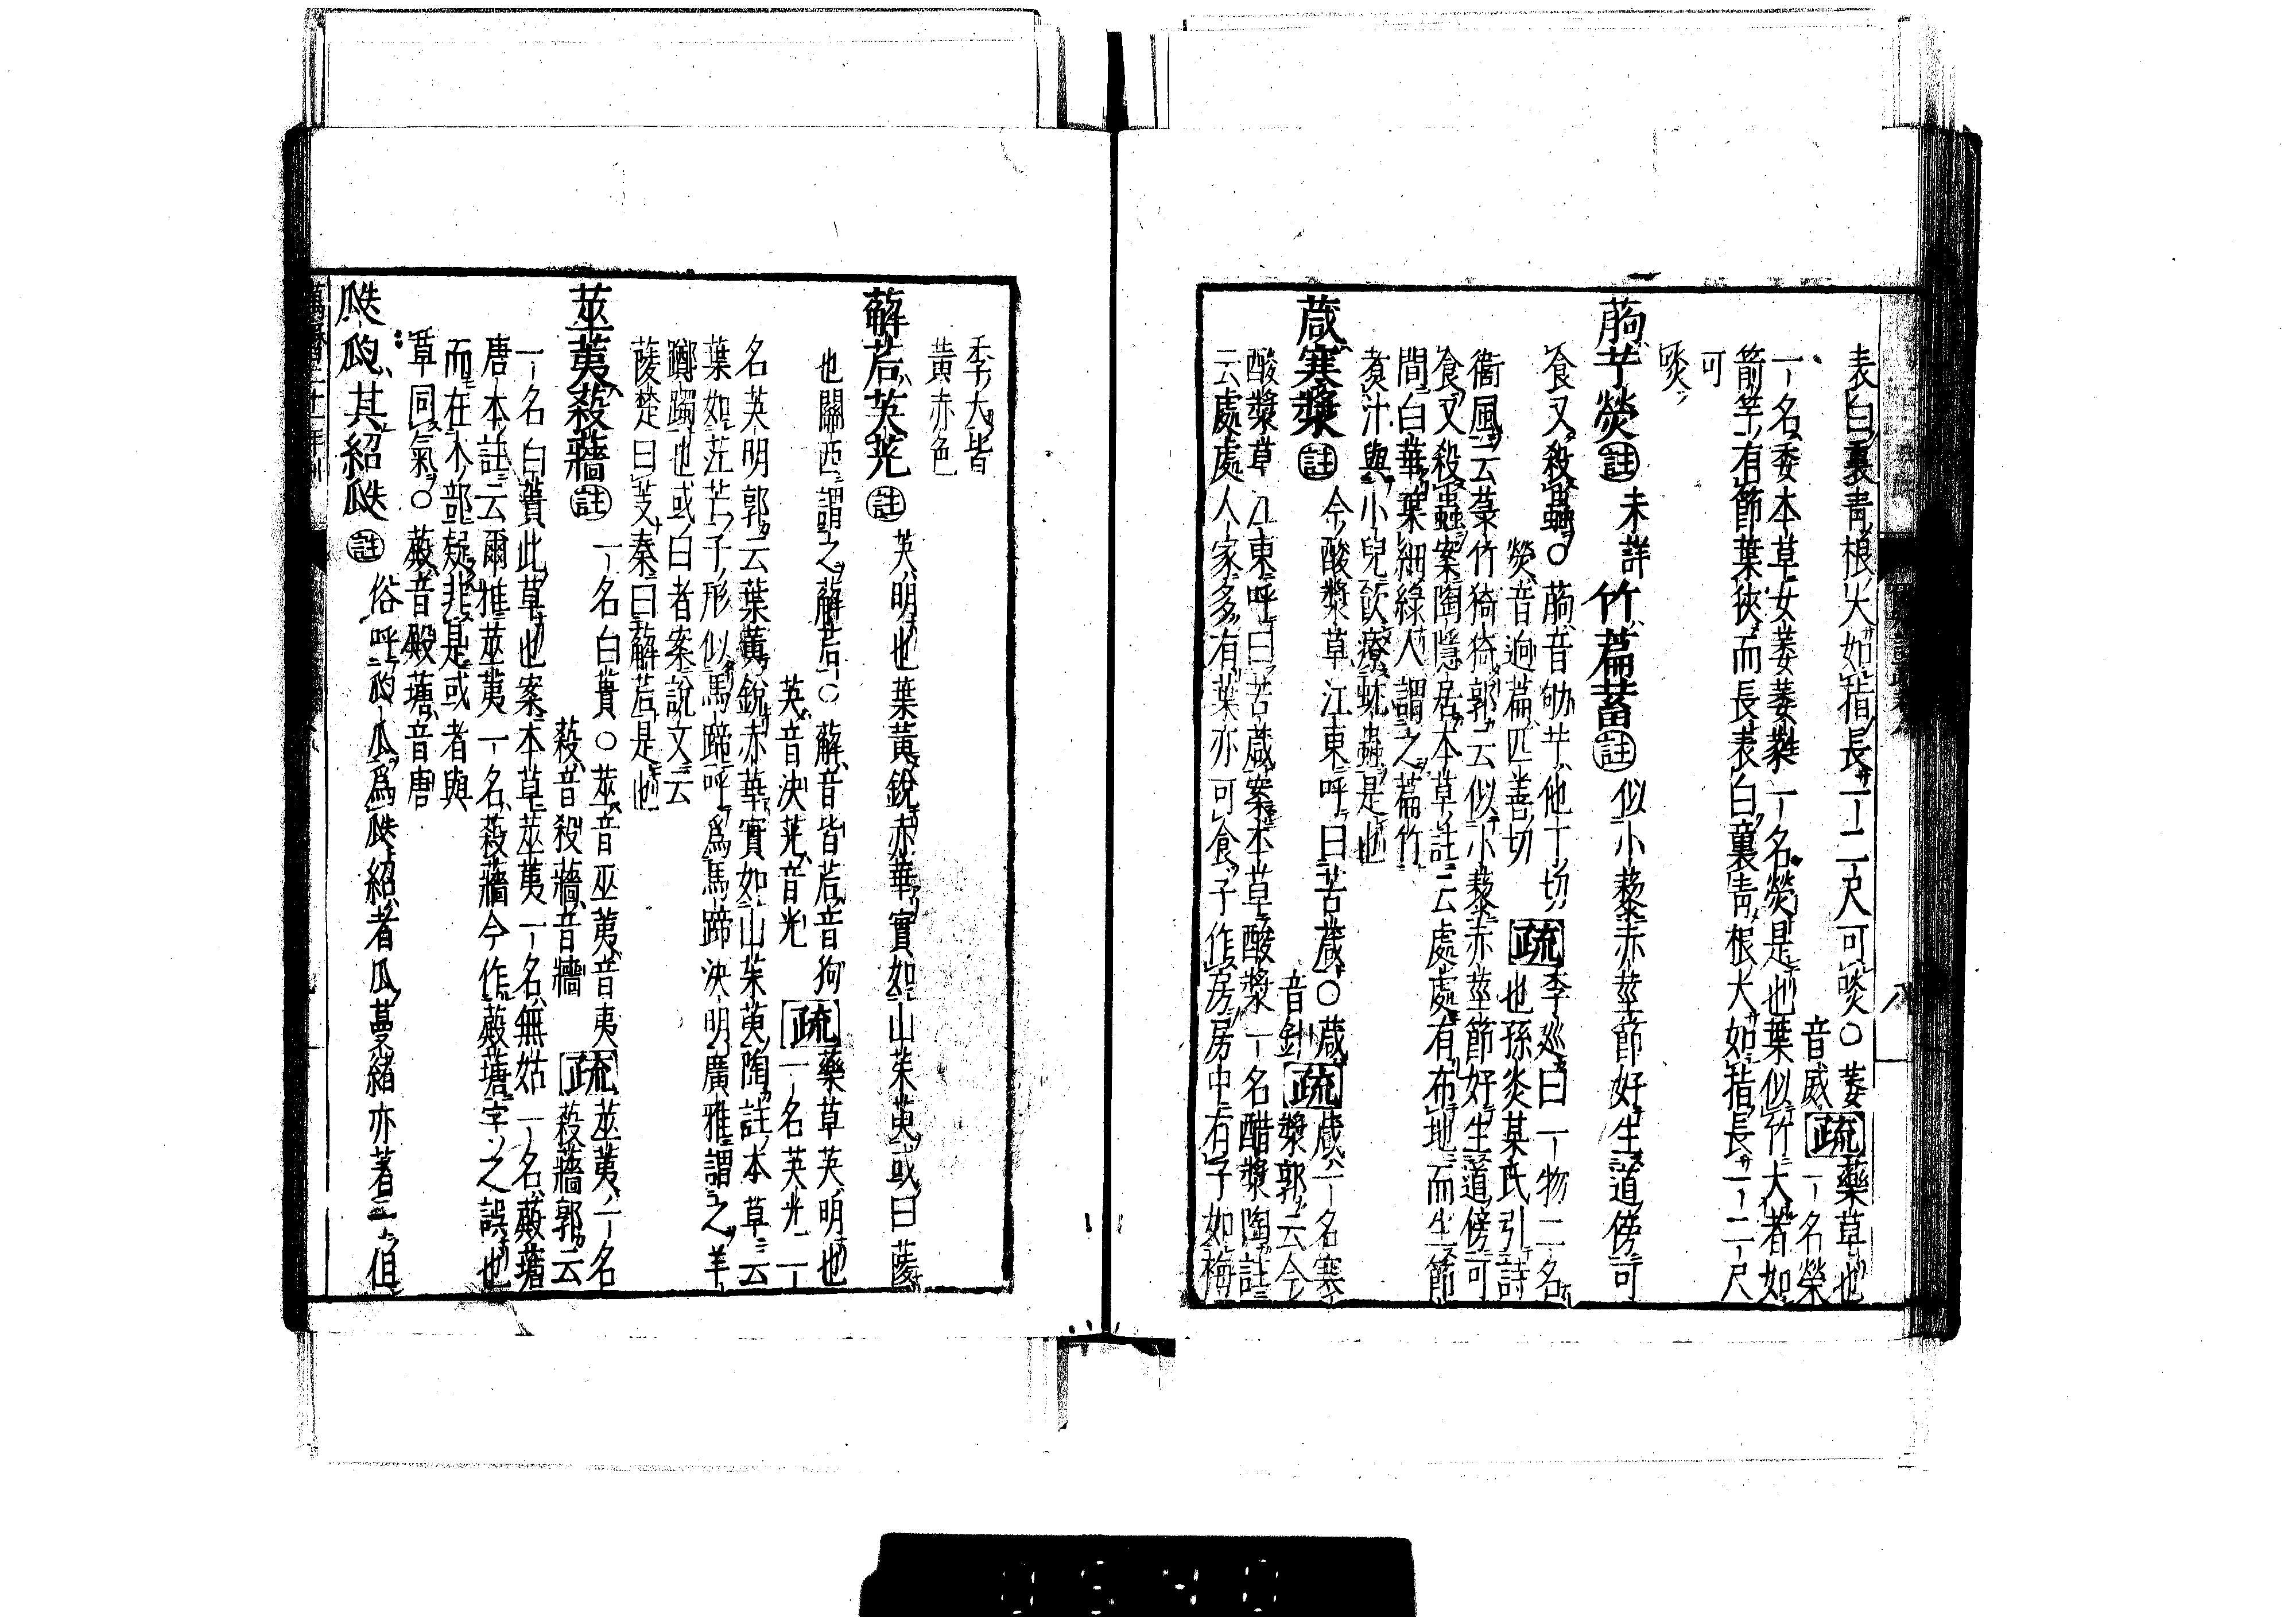 表白裏青根大如指長一二尺可啖○萎
音威疏藥草也
一名榮
一名委本草女萎萎蕤一名熒是也葉似竹大者如
箭竿有節葉狹而長表白裏青根大如指長一二尺
可
啖
葋艼熒註未詳竹萹蓄註似小藜赤莖節好生道傍可
食又殺蟲○葋音劬艼他丁切
熒音迥萹匹善切疏李巡曰一物二名
也孫炎某氏引詩
衞風云菉竹猗猗郭云似小藜赤莖節好生道傍可
食又殺蟲案陶隱居本草註云處處有布地而生節
間白華葉細綠人謂之萹竹
煮汁與小兒飲療蚘蟲是也
葴寒漿註今酸漿草江東呼曰苦葴○葴
音針疏葴一名寒
漿郭云今
酸漿草江東呼曰苦葴案本草酸漿一名醋漿陶註
云處處人家多有葉亦可食子作房房中有子如梅
李大皆
黃赤色
薢茩芵茪註芵明也葉黃銳赤華實如山茱萸或曰薐
也關西謂之薢茩○薢音皆茩音狗
芵音決茪音光疏藥草芵明也
一名芵光一
名芵明郭云葉黃銳赤華實如山茱萸陶註本草云
葉如茳芒子形似馬蹄呼爲馬蹄決明廣雅謂之羊
躑躅也或曰者案說文云
薐楚曰芰秦曰薢茩是也
莁荑蔱蘠註一名白蕢○莁音巫荑音夷
蔱音殺蘠音牆疏莁荑一名
蔱蘠郭云
一名白蕢此草也案本草莁荑一名無姑一名蕺瑭
唐本註云爾雅莁荑一名蔱蘠今作蕺瑭字之誤也
而在木部疑非是或者與
草同氣○蕺音殿瑭音唐
瓞瓝其紹瓞註俗呼瓝瓜爲瓞紹者瓜蔓緒亦著子但